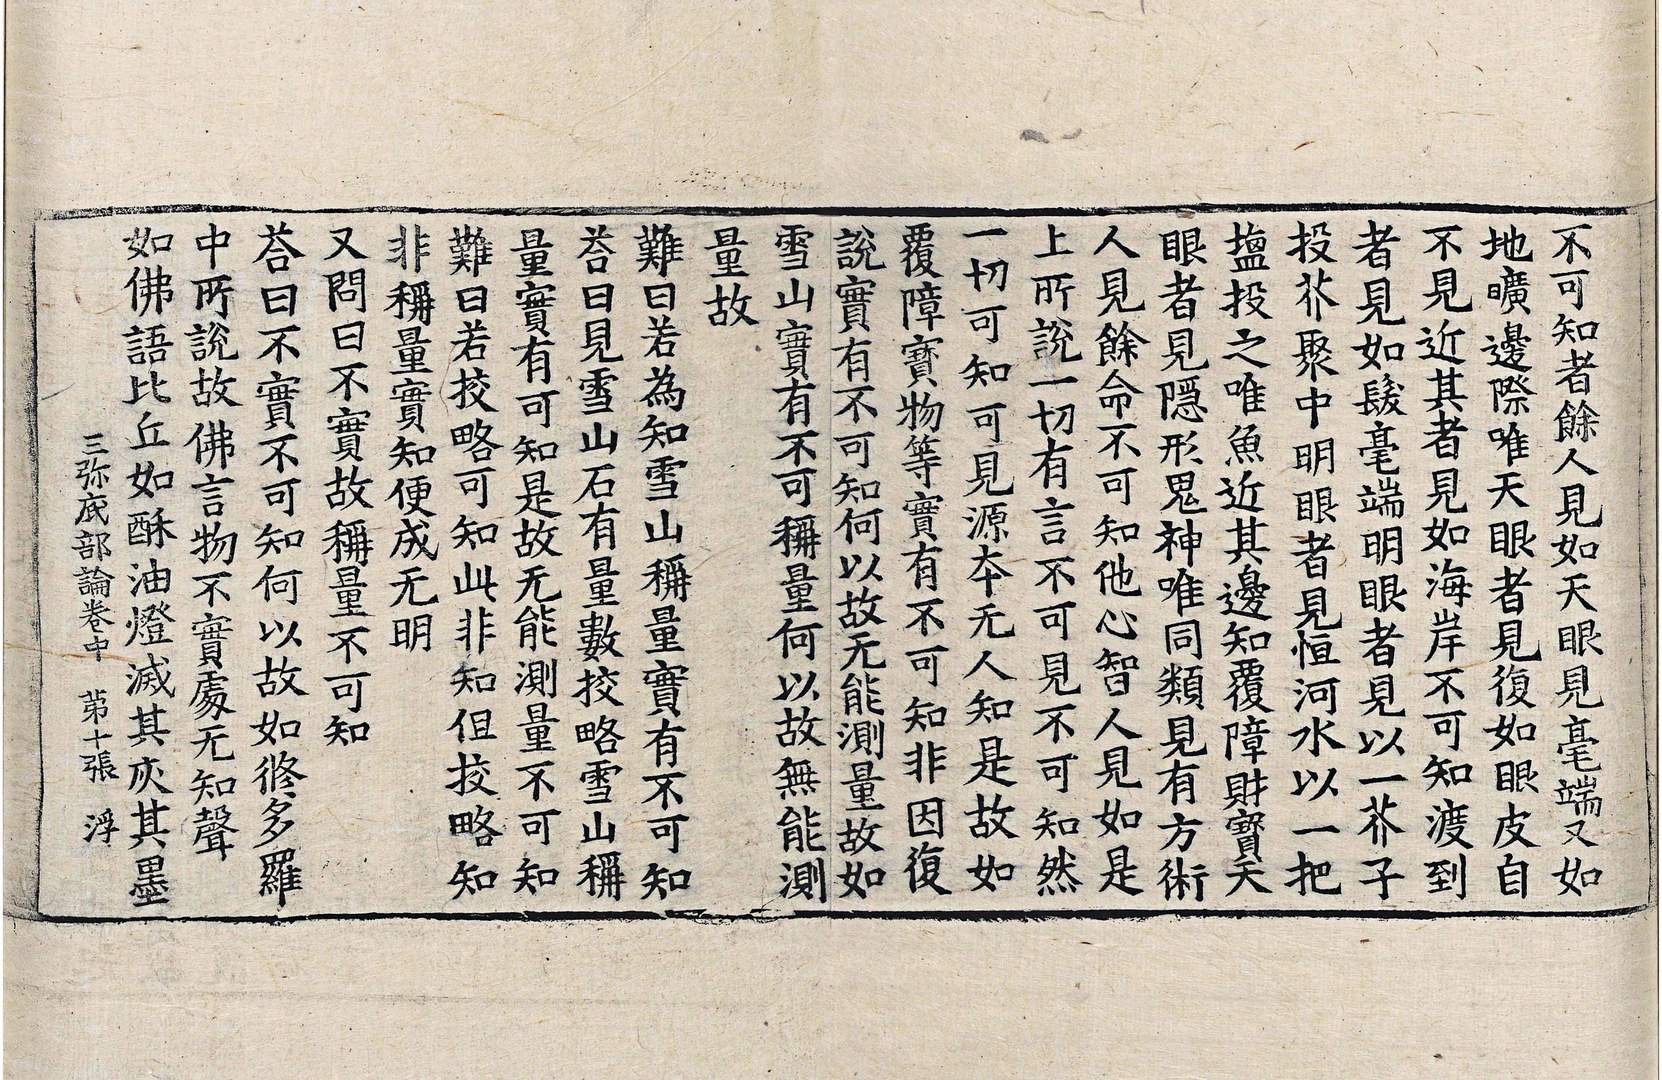 不可知者餘人見如天眼見毫端又如
地曠邊際唯天眼者見復如眼皮自
不見近其者見如海岸不可知渡到
者見如髮毫端明眼者見以一芥子
投芥聚中明眼者見恒河水以一把
塩投之唯魚近其邊知覆障財寶天
眼者見隠形鬼神唯同類見有方術
人見餘命不可知他心智人見如是
上所說一切有言不可見不可知然
一切可知可見源本无人知是故如
覆障寶物等實有不可知非因復
說實有不可知何以故无能測量故如
雪山實有不可稱量何以故無能測
量故
難曰若為知雪山稱量實有不可知
荅曰見雪山石有量數挍略雪山稱
量實有可知是故无能測量不可知
難曰若挍略可知此非知但挍略知
非稱量實知便成无明
又問曰不實故稱量不可知
荅曰不實不可知何以故如脩多羅
中所說故佛言物不實處无知聲
如佛語比丘如酥油燈滅其灰其墨
三弥底部論卷中 第十張 浮